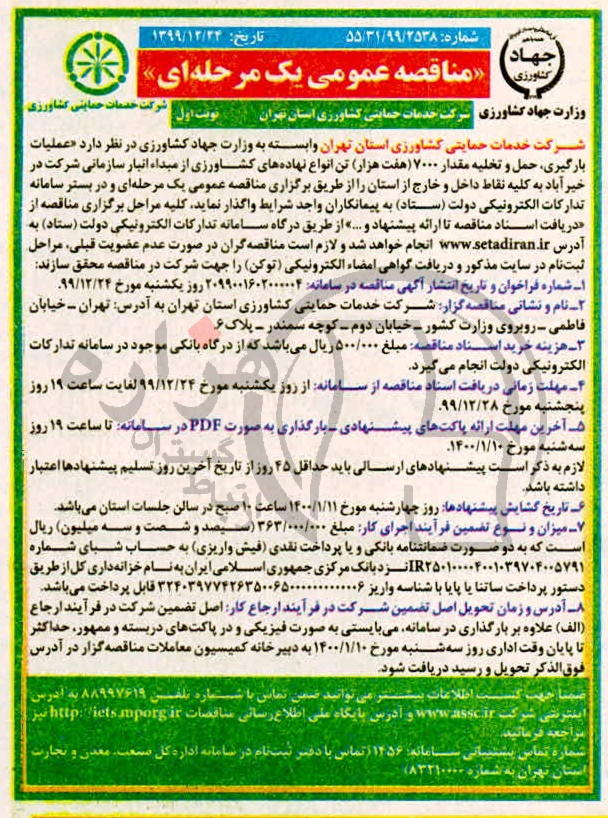 شماره: ۵۵/۳۱/۹۹/۲۵۳۸ تاریخ: ۱۳۹۹/۱۲/۲۴
جهاد
کشاورزی
«مناقصه عمومی یک مرحله‌ای»
وزارت جهاد کشاورزی
شرکت خدمات حمایتی کشاورزی استان تهران نوبت اول
شرکت خدمات حمایتی کشاورزی
شرکت خدمات حمایتی کشاورزی استان تهران وابسته به وزارت جهاد کشاورزی در نظر دارد «عملیات
بارگیری، حمل و تخلیه مقدار ۷۰۰۰ (هفت هزار) تن انواع نهاده‌های کشاورزی از مبداء انبار سازمانی شرکت در
خیرآباد به کلیه نقاط داخل و خارج از استان را از طریق برگزاری مناقصه عمومی یک مرحله‌ای و در بستر سامانه
تدارکات الکترونیکی دولت (ستاد) به پیمانکاران واجد شرایط واگذار نماید، کلیه مراحل برگزاری مناقصه از
«دریافت اسناد مناقصه تا ارائه پیشنهاد و ...» از طریق درگاه سامانه تدارکات الکترونیکی دولت (ستاد) به
آدرس www.setadiran.ir انجام خواهد شد و لازم است مناقصه‌گران در صورت عدم عضویت قبلی، مراحل
ثبت‌نام در سایت مذکور و دریافت گواهی امضاء الکترونیکی (توکن) را جهت شرکت در مناقصه محقق سازند:
۱ـ شماره فراخوان و تاریخ انتشار آگهی مناقصه در سامانه: ۲۰۹۹۰۰۱۶۰۲۰۰۰۰۰۴ روز یکشنبه مورخ ۹۹/۱۲/۲۴.
۲ـ نام و نشانی مناقصه‌گزار: شرکت خدمات حمایتی کشاورزی استان تهران به آدرس: تهران ـ خیابان
فاطمی ـ روبروی وزارت کشور ـ خیابان دوم ـ کوچه سمندر ـ پلاک ۶.
۳ـ هزینه خرید اسناد مناقصه: مبلغ ۵۰۰/۰۰۰ ریال می‌باشد که از درگاه بانکی موجود در سامانه تدارکات
الکترونیکی دولت انجام می‌گیرد.
۴ـ مهلت زمانی دریافت اسناد مناقصه از سامانه: از روز یکشنبه مورخ ۹۹/۱۲/۲۴ لغایت ساعت ۱۹ روز
پنجشنبه مورخ ۹۹/۱۲/۲۸.
۵ـ آخرین مهلت ارائه پاکت‌های پیشنهادی ـ بارگذاری به صورت PDF در سامانه: تا ساعت ۱۹ روز
سه‌شنبه مورخ ۱۴۰۰/۱/۱۰.
لازم به ذکر است پیشنهادهای ارسالی باید حداقل ۴۵ روز از تاریخ آخرین روز تسلیم پیشنهادها اعتبار
داشته باشد.
۶ـ تاریخ گشایش پیشنهادها: روز چهارشنبه مورخ ۱۴۰۰/۱/۱۱ ساعت ۱۰ صبح در سالن جلسات استان می‌باشد.
۷ـ میزان و نوع تضمین فرآیند اجرای کار: مبلغ ۳۶۳/۰۰۰/۰۰۰ (سیصد و شصت و سه میلیون) ریال
است که به دو صورت ضمانتنامه بانکی و یا پرداخت نقدی (فیش واریزی) به حساب شبای شماره
نزد بانک مرکزی جمهوری اسلامی ایران به نام خزانه‌داری کل از طریق
دستور پرداخت ساتنا یا پایا با شناسه واریز قابل پرداخت می‌باشد.
۸ـ آدرس و زمان تحویل اصل تضمین شرکت در فرآیند ارجاع کار: اصل تضمین شرکت در فرآیند ارجاع
(الف) علاوه بر بارگذاری در سامانه، می‌بایستی به صورت فیزیکی و در پاکت‌های دربسته و ممهور، حداکثر
تا پایان وقت اداری روز سه‌شنبه مورخ ۱۴۰۰/۱/۱۰ به دبیرخانه کمیسیون معاملات مناقصه‌گزار در آدرس
فوق‌الذکر تحویل و رسید دریافت شود.
ضمنا جهت کسب اطلاعات بیشتر می‌توانید ضمن تماس با شماره تلفن ۸۸۹۹۷۶۱۹ به آدرس
اینترنتی شرکت www.assc.ir و آدرس پایگاه ملی اطلاع‌رسانی مناقصات http://iets.mporg.ir نیز
مراجعه فرمائید.
شماره تماس پشتیبانی سامانه: ۱۴۵۶ (تماس با دفتر ثبت‌نام در سامانه اداره کل صنعت، معدن و تجارت
استان تهران به شماره ۸۳۲۱۰۰۰۰)
هزاره